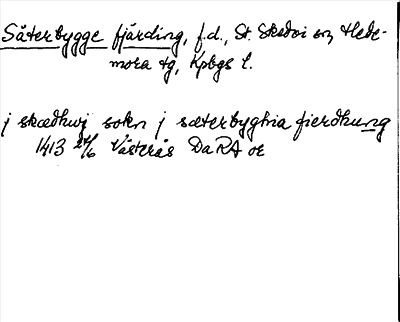 Säterbygge fjärding, f.d., St. Skedvi sn, Hede-
mora tg, Kpbgs l.
j skædhwj sokn j sæterbyghia fierdhung
1413 24/6 Västerås DaRA or